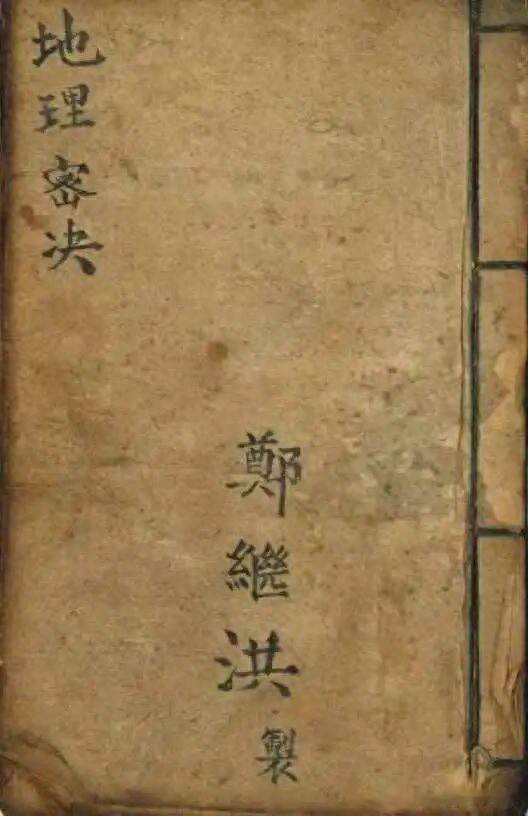 地理密决
鄭繼洪製